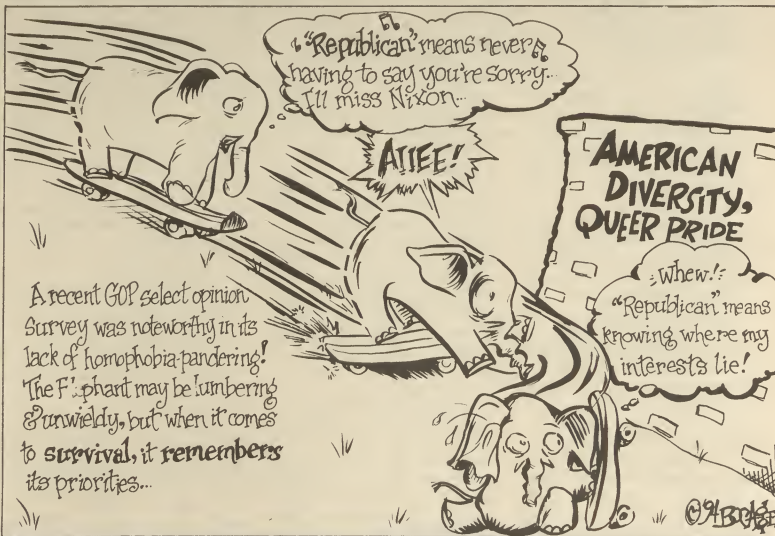 "Republican" means never
having to say you're sorry...
I'll miss Nixon...
AIIEE!
AMERICAN
DIVERSITY,
QUEER PRIDE
Whew!
"Republican" means
knowing where my
interests lie!
A recent GOP select opinion
survey was noteworthy in its
lack of homophobia-pandering!
The may be lumbering
& unwieldy, but when it comes
to survival, it remembers
its priorities...
©'94